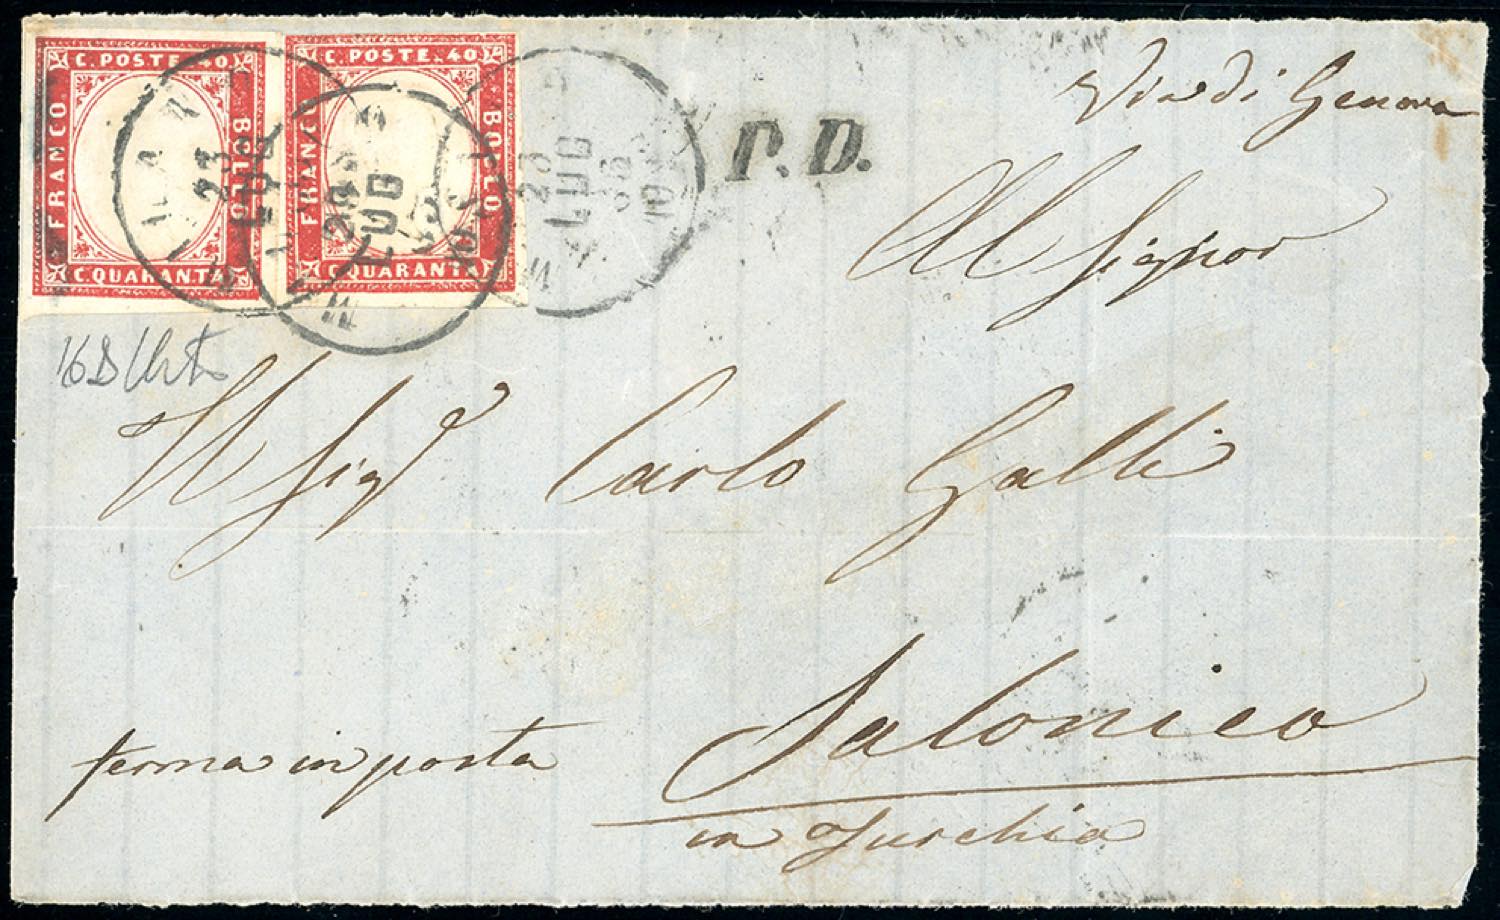 C. POSTE. 40
FRANCO.
BOLLO.
C. QUARANTA
C. POSTE. 40
FRANCO
BOLLO
C. QUARANTA
23
LUG
23
LUG
23
LUG
P.D.
Via di Genova
Al Signor
Il Sigr Carlo Galli
ferma in posta
Salonico
in Turchia